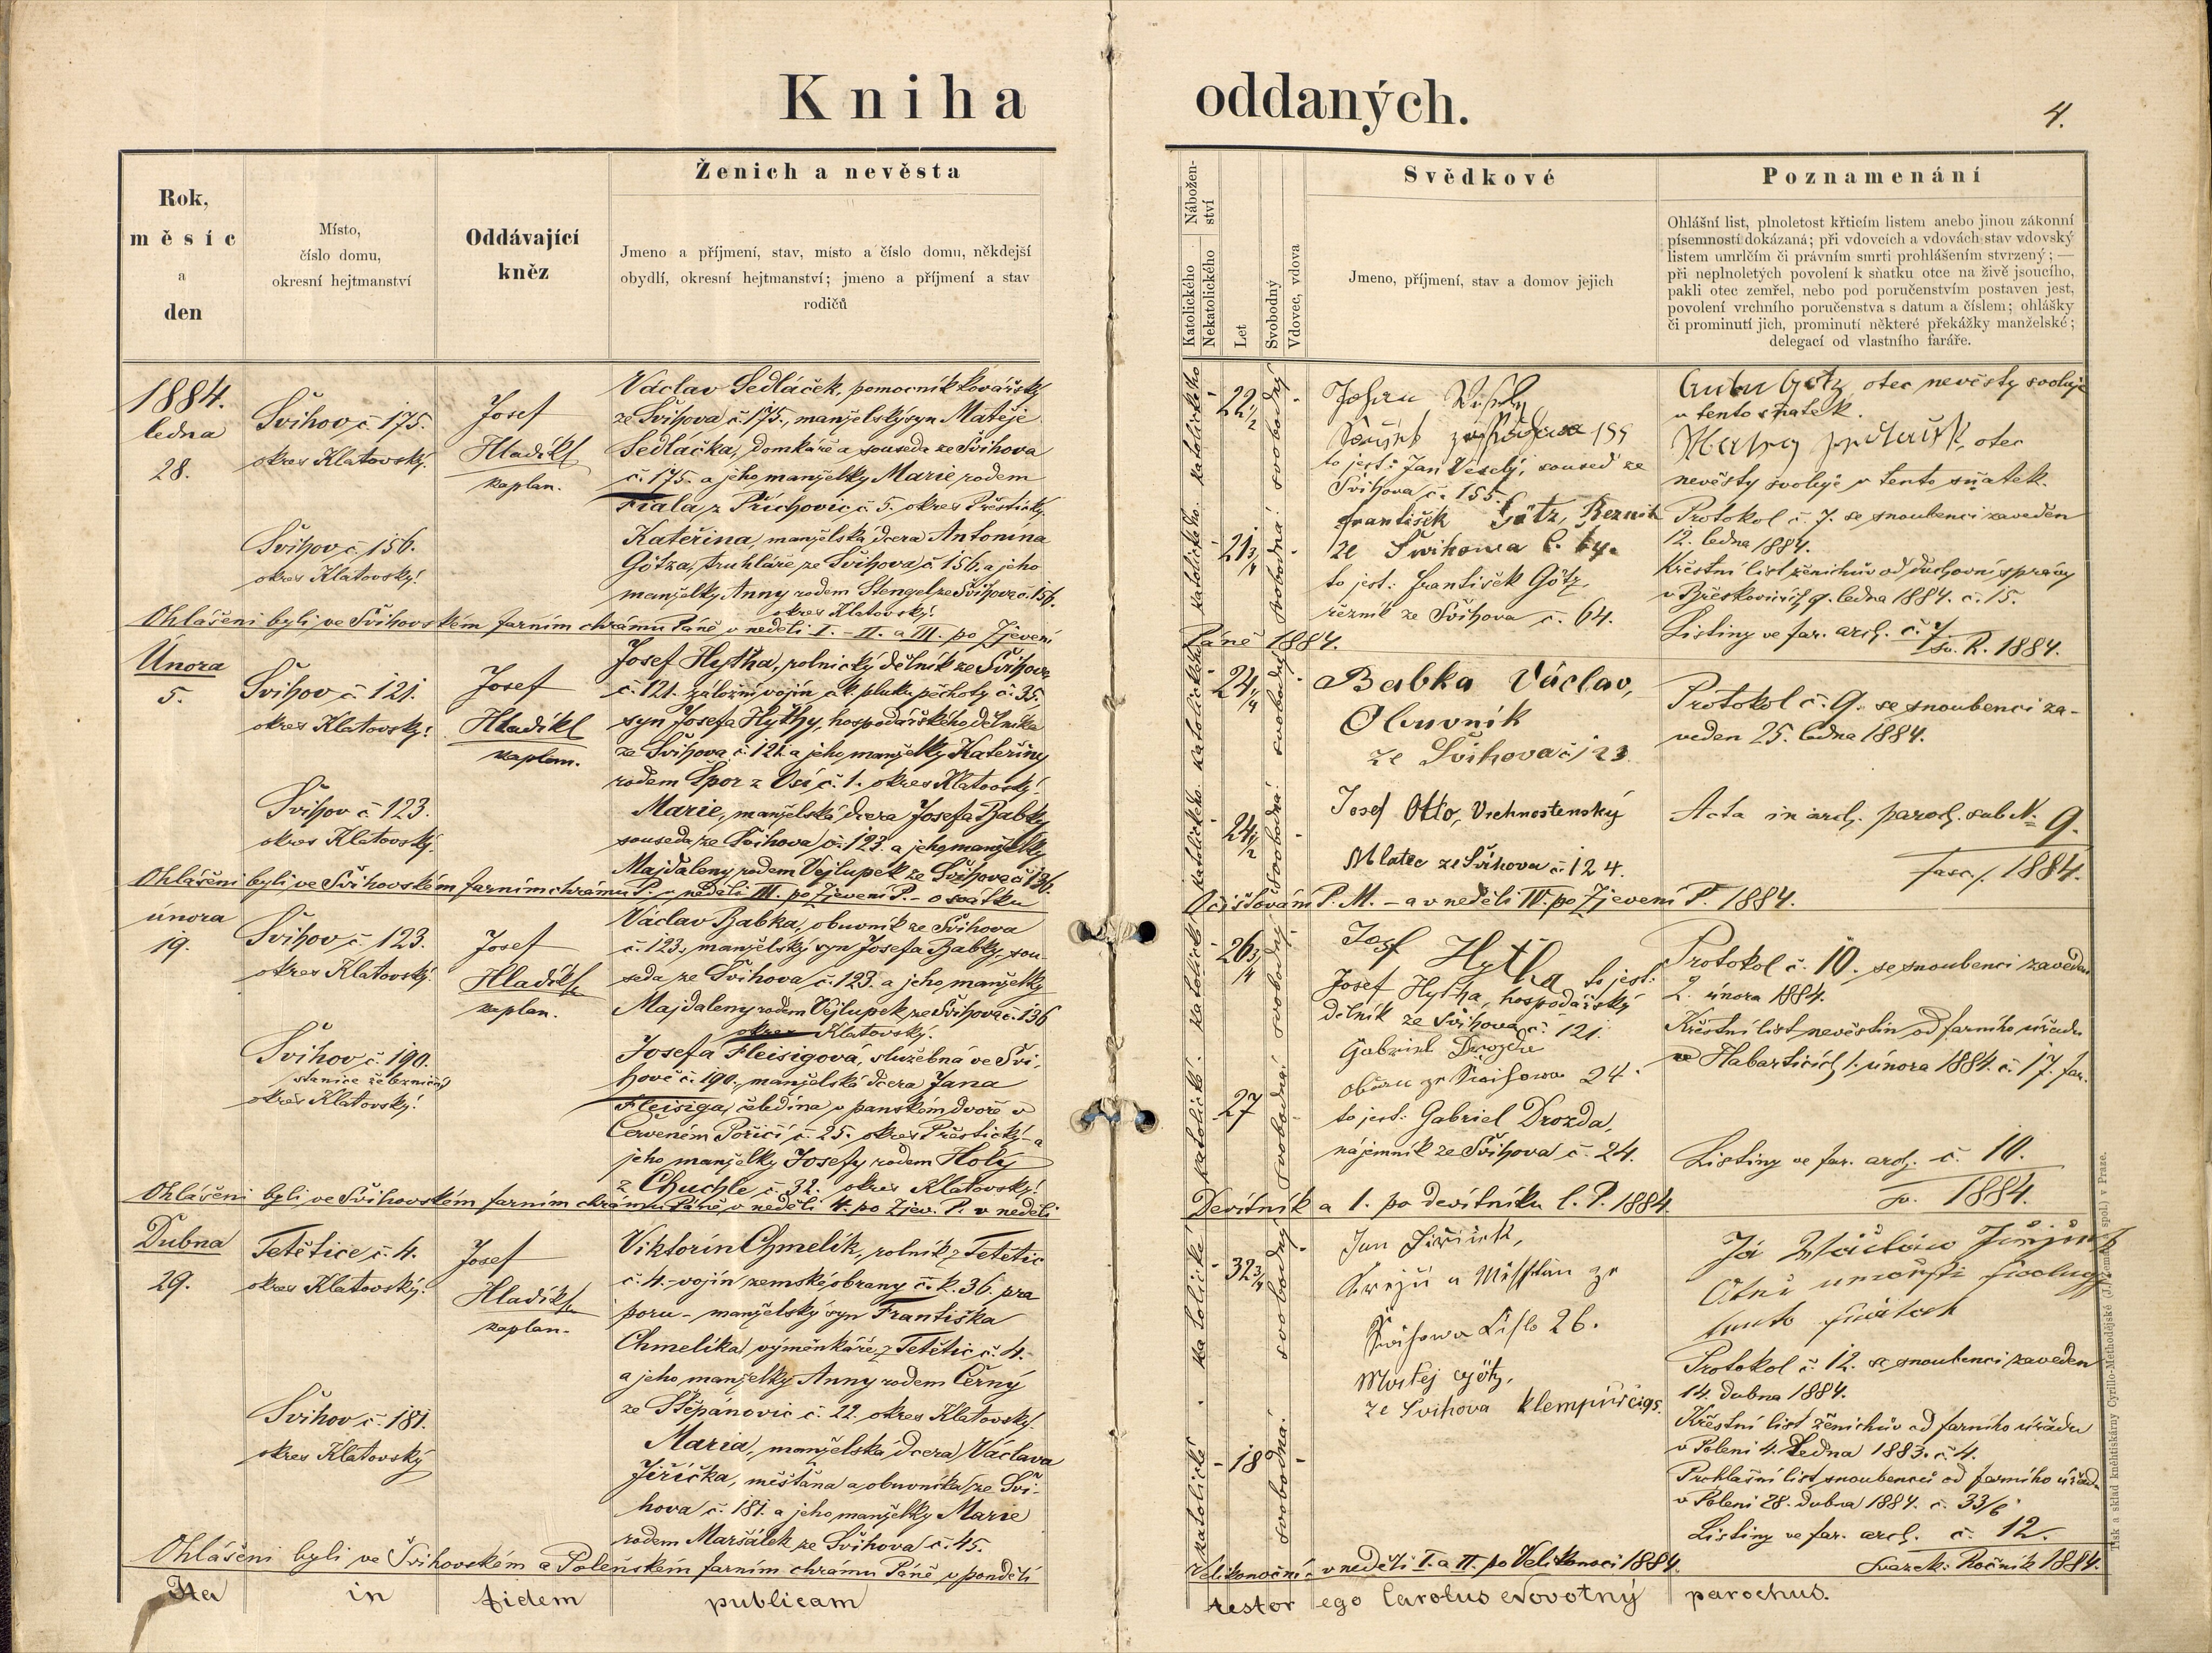 Kniha
oddaných.
4.
Rok,
měsíc
a
den
Místo,
číslo domu,
okresní hejtmanství
Oddávající
kněz
Ženich a nevěsta
Jmeno a příjmení, stav, místo a číslo domu, někdejší
obydlí, okresní hejtmanství; jmeno a příjmení a stav
rodičů
Nábožen-
ství
Katolického
Nekatolického
Let
Svobodný
Vdovec, vdova
Svědkové
Jmeno, příjmení, stav a domov jejich
Poznamenání
Ohlášní list, plnoletost křticím listem anebo jinou zákonní
písemností dokázaná; při vdovcích a vdovách stav vdovský
listem umrlčím či právním smrti prohlášením stvrzený; —
při neplnoletých povolení k sňatku otce na živě jsoucího,
pakli otec zemřel, nebo pod poručenstvím postaven jest,
povolení vrchního poručenstva s datum a číslem; ohlášky
či prominutí jich, prominutí některé překážky manželské;
delegací od vlastního faráře.
1884.
ledna
28.
Švihov č. 175.
okres Klatovský.
Josef
Hladíkl
kaplan.
Václav Sedláček, pomocník kovářský
ze Švihova č. 175., manželský syn Matěje
Sedláčka, domkáře a souseda ze Švihova
č. 175. a jeho manželky Marie rodem
Fiala z Příchovic č. 5. okres Přestický.
Švihov č. 156.
okres Klatovský.
Kateřina, manželská dcera Antonína
Götza, truhláře ze Švihova č. 156. a jeho
manželky Anny rodem Stengel ze Švihova č. 156.
okres Klatovský.
katolického
22 1/2
svobodný
katolického
21 3/4
svobodná
to jest: Jan Veselý, soused ze
Švihova č. 155.
František Götz, Řezník
ze Švihowa č. 64.
to jest: František Götz,
řezník ze Švihova č. 64.
Götz, otec nevěsty svoluje
v tento sňatek.
otec
nevěsty svoluje v tento sňatek.
Protokol č. 7. se snoubenci zaveden
12. ledna 1884.
Křestní list ženichův od duchovní správy
v Břeskovicích 9. ledna 1884. č. 15.
Listiny ve far. arch. č. 7.
sv. R. 1884.
Ohlášeni byli ve Švihovském farním chrámu Páně v neděli I. - II. a III. po Zjevení
Páně 1884.
Února
5.
Švihov č. 121.
okres Klatovský.
Josef
Hladíkl
kaplan.
Josef Hytha, rolnický dělník ze Švihova
č. 121. záložní vojín c. k. pluku pěchoty č. 35.,
syn Josefa Hythy, hospodářského dělníka
ze Švihova č. 121. a jeho manželky Kateřiny
rodem Špor z Vsí č. 1. okres Klatovský.
Švihov č. 123.
okres Klatovský.
Marie, manželská dcera Josefa Babky
souseda ze Švihova č. 123. a jeho manželky
Majdaleny rodem Vejlupek ze Švihova č. 136.
katolického
24 1/4
svobodný
katolického
24 1/2
svobodná
Babka Václav,
Obuvník
ze Švihova č 123.
Josef Otto, Vrchnostenský
Mlatec ze Švihova č. 124.
Protokol č. 9. se snoubenci za-
veden 25. ledna 1884.
Acta in arch. paroch. sub N. 9.
fasc. 1884.
Ohlášeni byli ve Švihovském farním chrámu P. v neděli III. po Zjevení P. - o svátku
Očišťování P. M. - a v neděli IV. po Zjevení P. 1884.
února
19.
Švihov č. 123.
okres Klatovský.
Josef
Hladíkl
kaplan.
Václav Babka, obuvník ze Švihova
č. 123., manželský syn Josefa Babky, sou-
seda ze Švihova č. 123. a jeho manželky
Majdaleny rodem Vejlupek ze Švihova č. 136
okres Klatovský.
Švihov č. 190.
stanice železniční
okres Klatovský.
Josefa Fleisigová, služebná ve Švi-
hově č. 190., manželská dcera Jana
Fleisiga, čeledína v panském dvoře v
Červeném Poříčí č. 25. okres Přestický - a
jeho manželky Josefy rodem Holý
z Chuchle č. 32. okres Klatovský.
katolické
26 3/4
svobodný
katolické
27
svobodná
Josef Hytha to jest:
Josef Hytha, hospodářský
dělník ze Švihova č. 121.
Gabriel Drozda
24
to jest: Gabriel Drozda,
nájemník ze Švihova č. 24.
Protokol č. 10. se snoubenci zaveden
2. února 1884.
Křestní list nevěstin od farního úřadu
ve Habarticích 1. února 1884. č. 17. far.
Listiny ve far. arch. č. 10.
sv. 1884.
Ohlášeni byli ve Švihovském farním chrámu Páně v neděli V. po Zjev. P. v neděli
Devítník a 1. po devítníku l. P. 1884.
Dubna
29.
Tetětice č. 4.
okres Klatovský.
Josef
Hladíkl
kaplan.
Viktorín Chmelík, rolník z Tetětic
č. 4. - vojín zemské obrany č. k. 36. pra
poru - manželský syn Františka
Chmelíka, výměnkáře z Tetětic č. 4.
a jeho manželky Anny rodem Černý
ze Štěpánovic č. 22. okres Klatovský.
Švihov č. 181.
okres Klatovský
Maria, manželská dcera Václava
Jiříčka, měšťana a obuvníka ze Švi-
hova č. 181. a jeho manželky Marie
rodem Maršálek ze Švihova č. 45.
katolické
32 3/4
svobodný
katolické
18
svobodná
Jan Jiříček,
ze
Švihowa Číslo 26.
Matěj Götz,
ze Svihova Klempíř
Já
tento
Protokol č. 12. se snoubenci zaveden
14. dubna 1884.
Křestní list ženichův od farního úřadu
v Poleni 4. ledna 1883. č. 4.
Prohlašní list snoubenců od farního úřadu
v Poleni 28. dubna 1884. č. 33/6
Listiny ve far. arch. č. 12.
Svazek: Ročník 1884.
Ohlášeni byli ve Švihovském a Poleňském farním chrámu Páně v pondělí
Velikonoční - v neděli I. a II. po Velikonoci 1884.
Ita in fidem publicam
testor ego Carolus Novotný parochus.
Tisk a sklad knihtiskárny Cyrillo-Methodějské (J. Zeman spol.) v Praze.